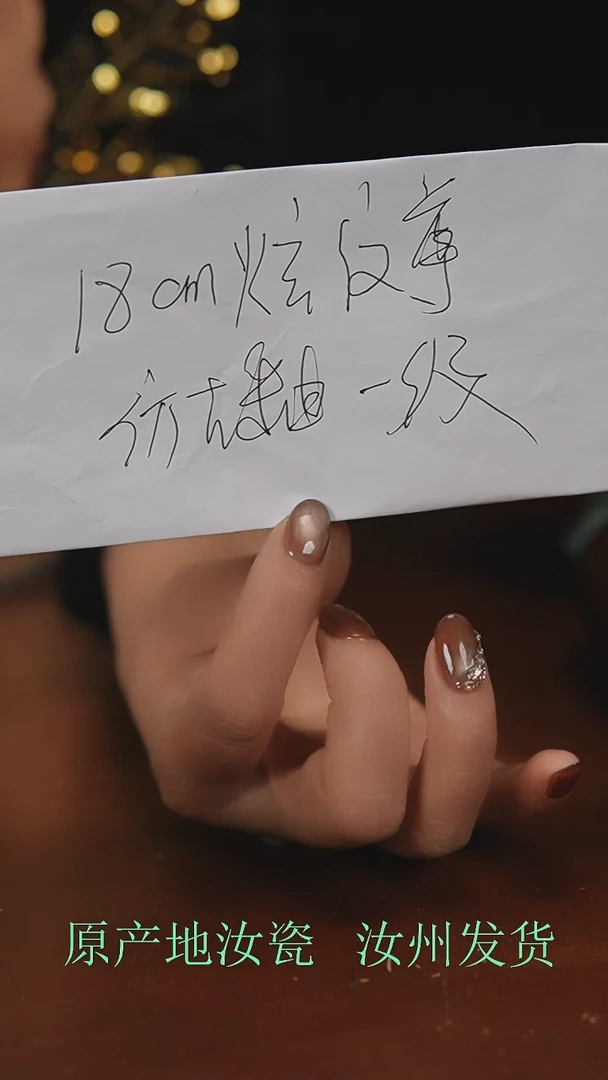 18cm炫纹尊
仿古釉一级
原产地汝瓷 汝州发货